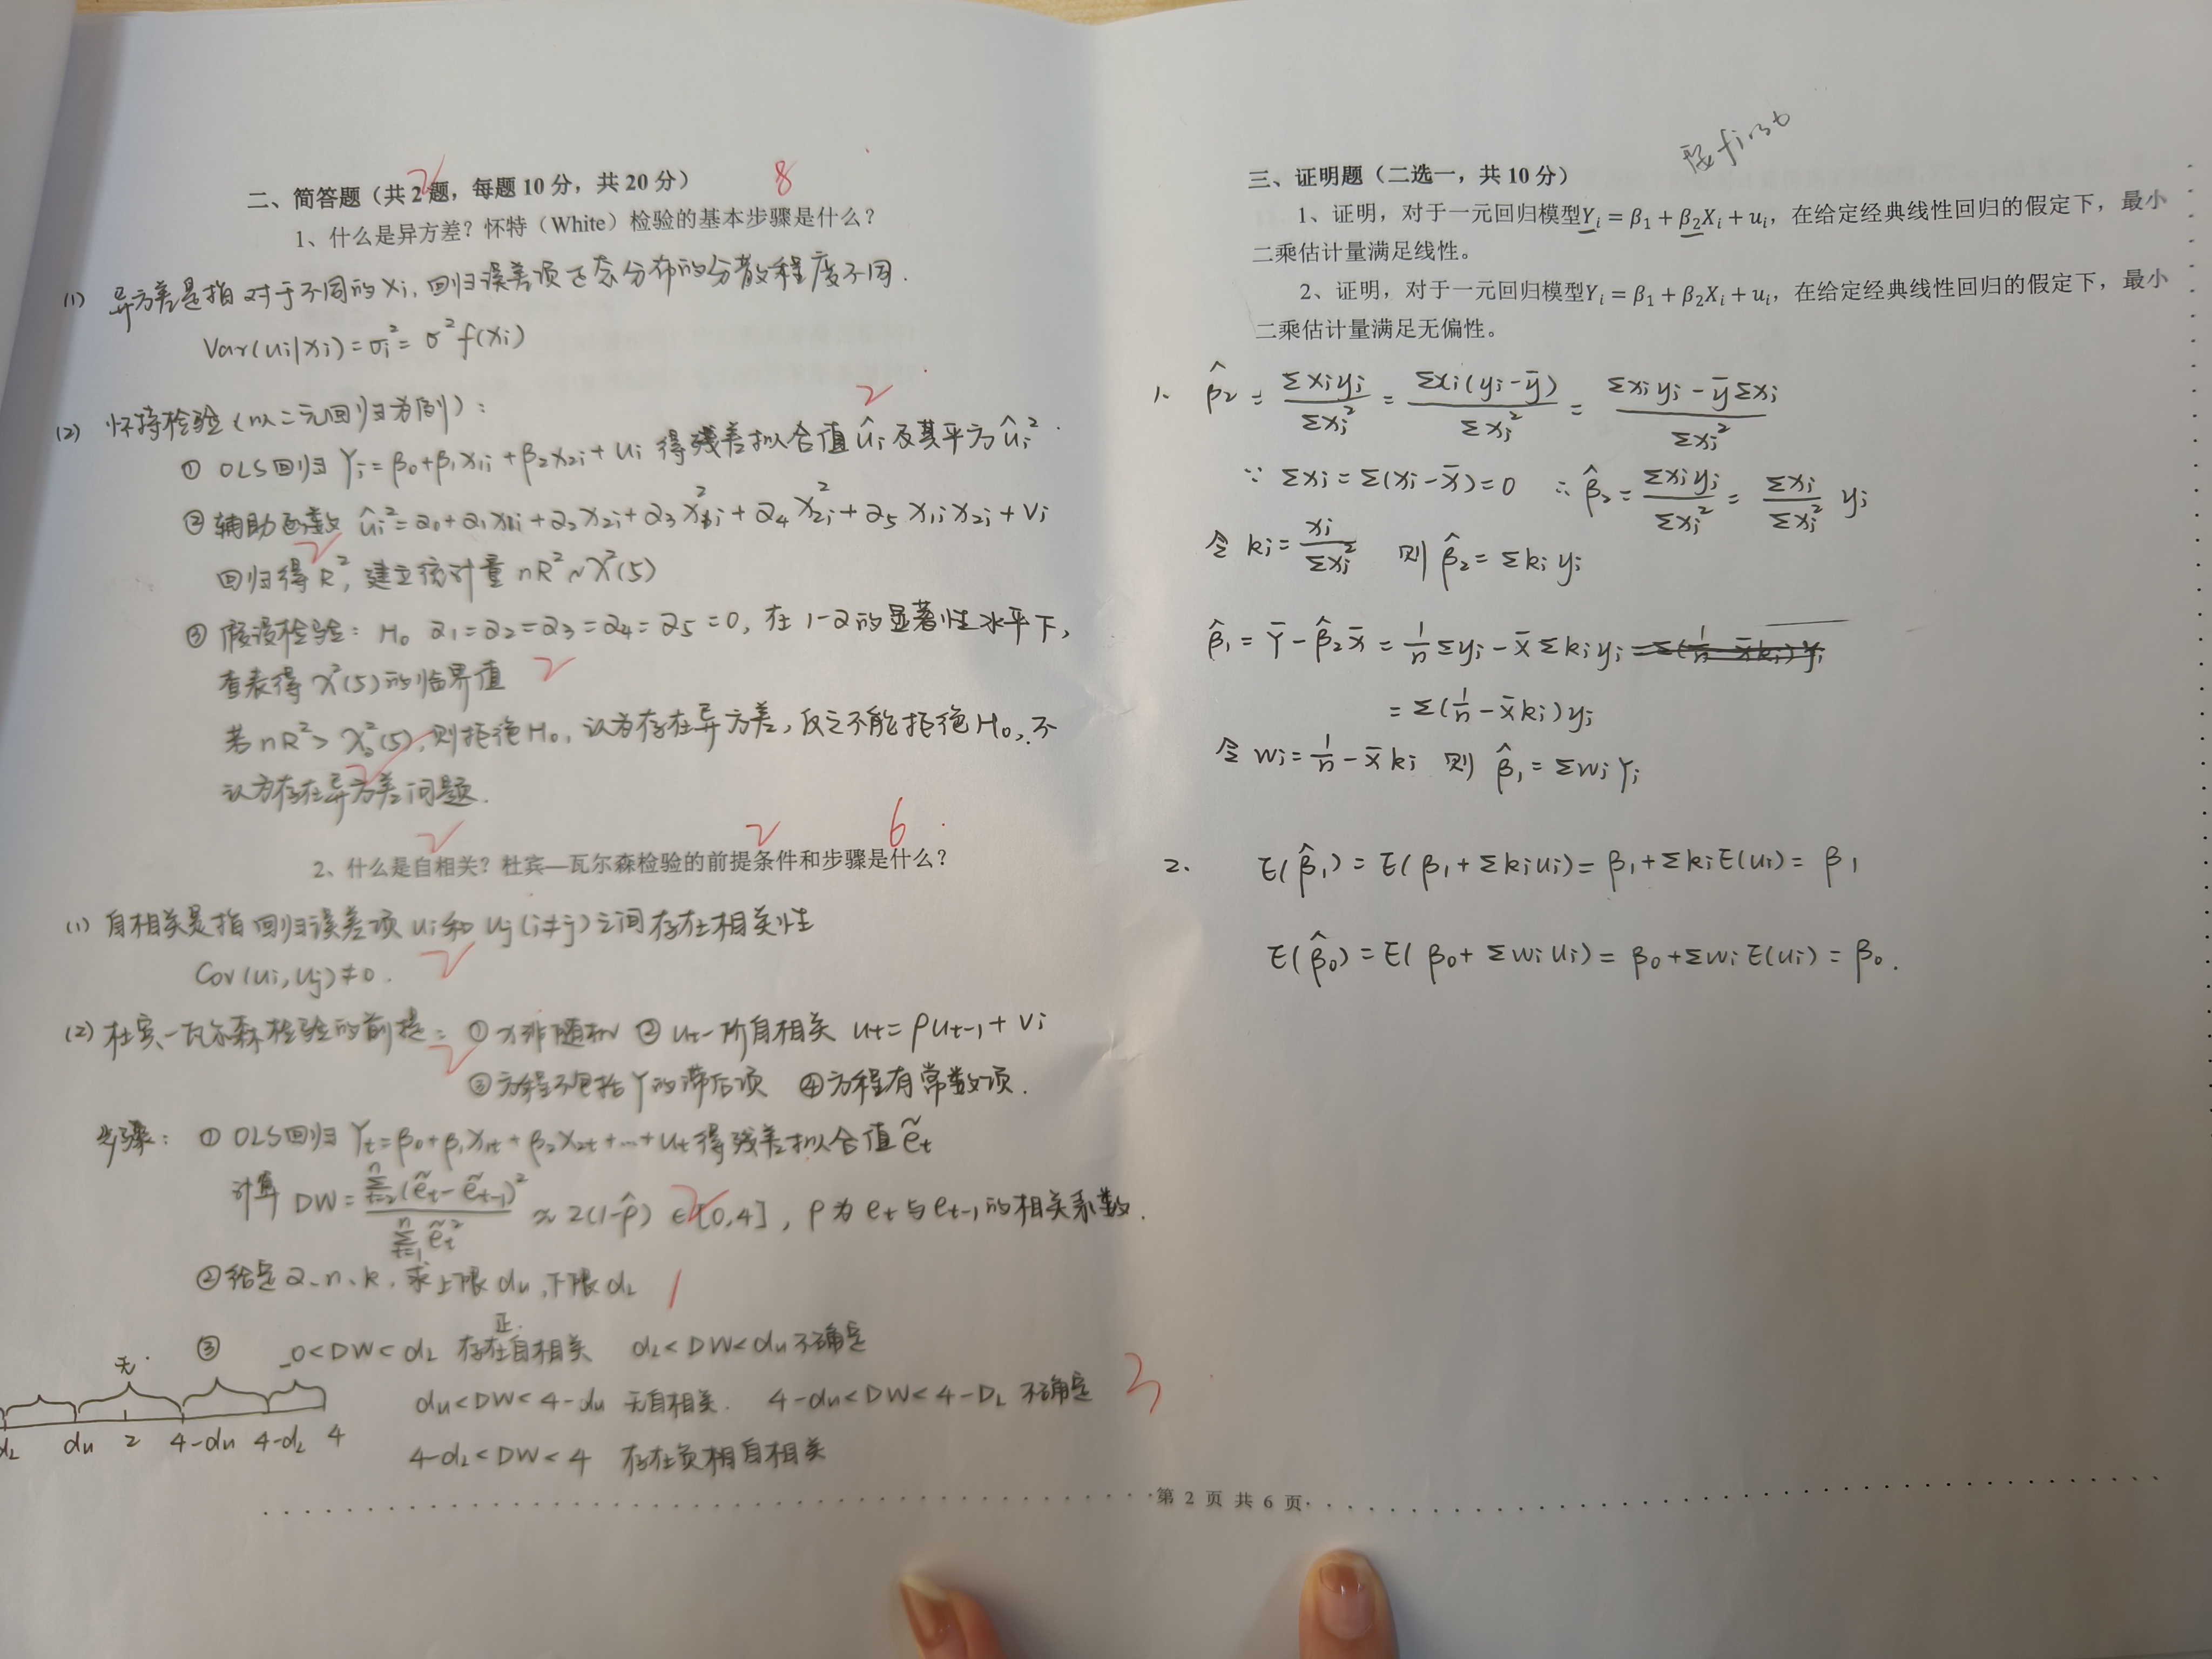 二、简答题（共2题，每题10分，共20分）
2
8
1、什么是异方差？怀特（White）检验的基本步骤是什么？
(1) 异方差是指对于不同的Xi，回归误差项正态分布的分散程度不同.
Var(ui|xi)=σi²=σ²f(xi)
(2) 怀特检验（以二元回归为例）:
2
① OLS回归 Yi=β0+β1X1i+β2X2i+ui 得残差拟合值ûi及其平方ûi².
② 辅助函数 ûi²=α0+α1X1i+α2X2i+α3X1i²+α4X2i²+α5X1iX2i+Vi
2
回归得R², 建立统计量 nR²~χ²(5)
③ 假设检验: H0 α1=α2=α3=α4=α5=0, 在1-α的显著性水平下,
查表得χ²(5)的临界值
2
若nR²>χα²(5), 则拒绝H0, 认为存在异方差, 反之不能拒绝H0, 不
认为存在异方差问题.
2
2 2 6
2、什么是自相关？杜宾—瓦尔森检验的前提条件和步骤是什么？
(1) 自相关是指回归误差项ui和uj(i≠j)之间存在相关性
Cov(ui,uj)≠0.
2
(2) 杜宾-瓦尔森检验的前提: ① x非随机 ② ut一阶自相关 ut=ρut-1+vi
2
③方程不包括Y的滞后项 ④方程有常数项.
步骤: ① OLS回归 Yt=β0+β1X1t+β2X2t+...+ut得残差拟合值ẽt
计算 DW=∑(t=2→n)(ẽt-ẽt-1)²/∑(t=1→n)ẽt² ≈ 2(1-ρ̂) ∈[0,4], ρ为et与et-1的相关系数.
2
②给定α、n、k, 求上限du, 下限dL
1
③ 0<DW<dL 存在正自相关 dL<DW<du不确定
du<DW<4-du 无自相关. 4-du<DW<4-DL 不确定
3
4-dL<DW<4 存在负相自相关
无
dL du 2 4-du 4-dL 4
first
三、证明题（二选一，共10分）
1、证明，对于一元回归模型Yi = β1 + β2Xi + ui，在给定经典线性回归的假定下，最小
二乘估计量满足线性。
2、证明，对于一元回归模型Yi = β1 + β2Xi + ui，在给定经典线性回归的假定下，最小
二乘估计量满足无偏性。
1、 β̂2 = ∑xiyi/∑xi² = ∑xi(yi-ȳ)/∑xi² = (∑xiyi-ȳ∑xi)/∑xi²
∵ ∑xi=∑(xi-x̄)=0 ∴ β̂2=∑xiyi/∑xi² = ∑xi/∑xi² yi
令 ki=xi/∑xi² 则 β̂2=∑kiyi
β̂1=Ȳ-β̂2x̄ = 1/n ∑yi-x̄∑kiyi =∑(1/n-x̄ki)Yi
=∑(1/n-x̄ki)yi
令 wi=1/n-x̄ki 则 β̂1=∑wiYi
2、 E(β̂1)=E(β1+∑kiui)=β1+∑kiE(ui)=β1
E(β̂0)=E(β0+∑wiui)=β0+∑wiE(ui)=β0.
第 2 页 共 6 页